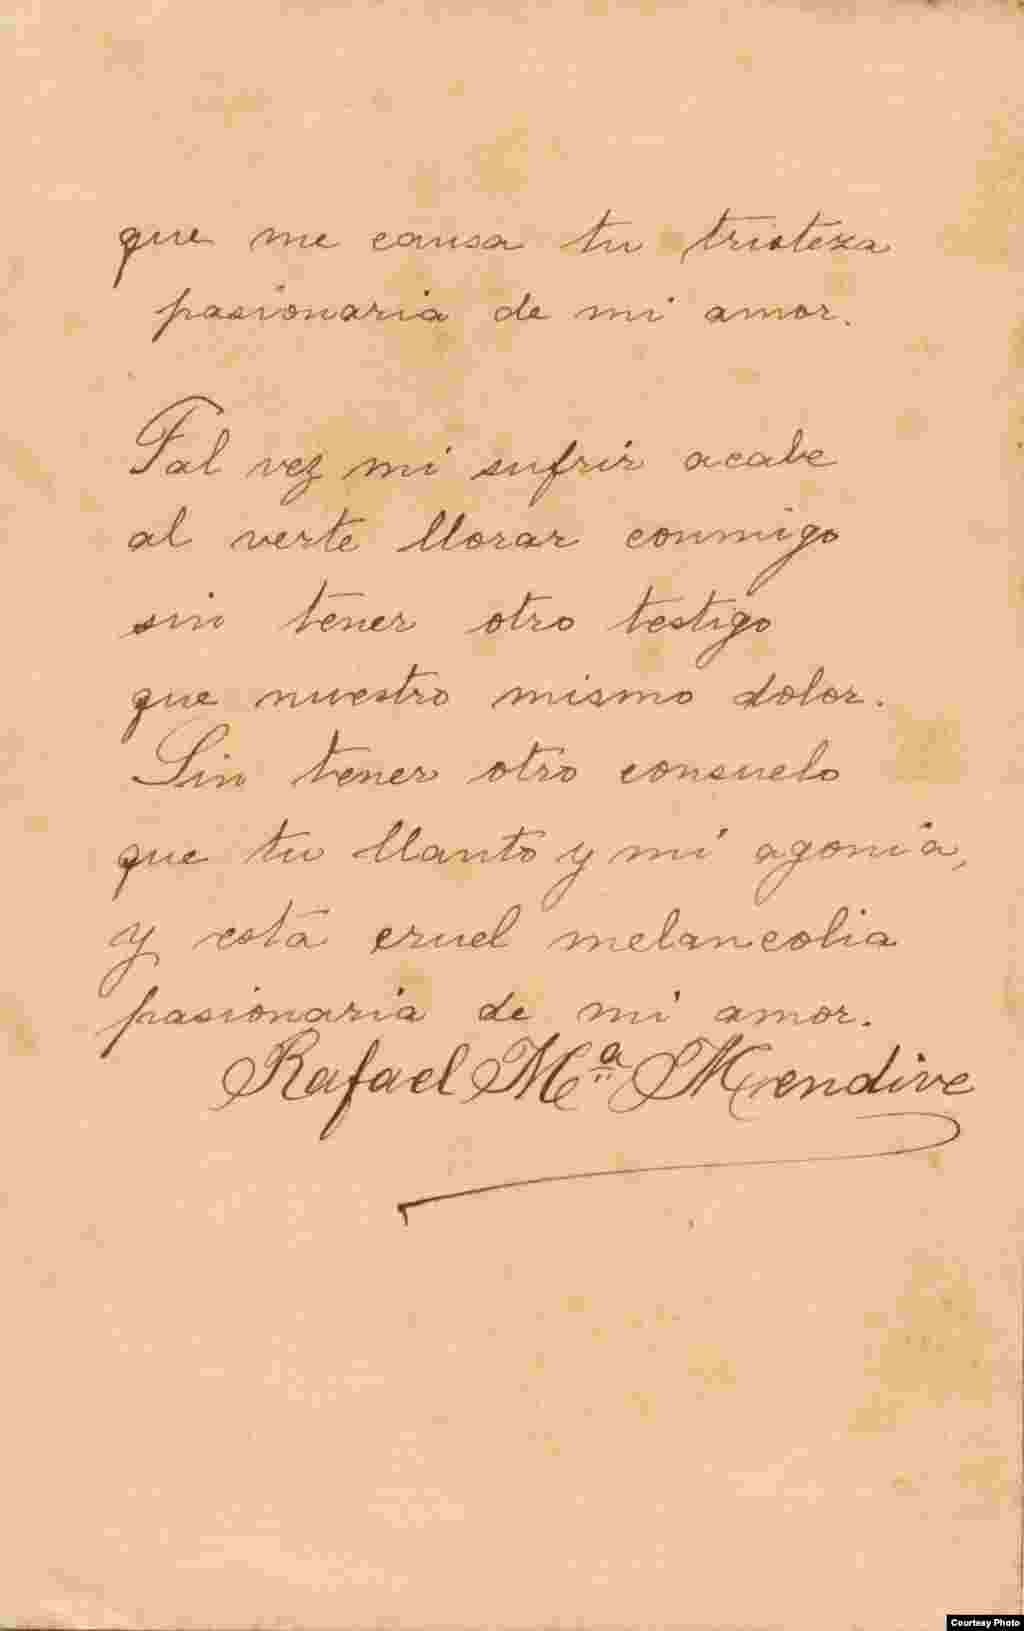 que me causa tu tristeza
pasionaria de mi amor.
Tal vez mi sufrir acabe
al verte llorar conmigo
sin tener otro testigo
que nuestro mismo dolor.
Sin tener otro consuelo
que tu llanto y mi agonia,
y está cruel melancolia
pasionaria de mi amor.
Rafael Mª Mendive
Courtesy Photo